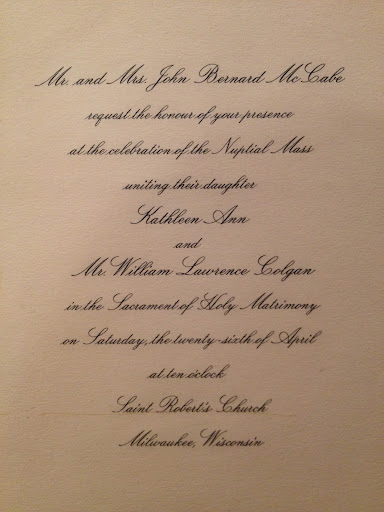 Mr. and Mrs. John Bernard McCabe
request the honour of your presence
at the celebration of the Nuptial Mass
uniting their daughter
Kathleen Ann
and
Mr. William Lawrence Colgan
in the Sacrament of Holy Matrimony
on Saturday, the twenty-sixth of April
at ten o'clock
Saint Robert's Church
Milwaukee, Wisconsin